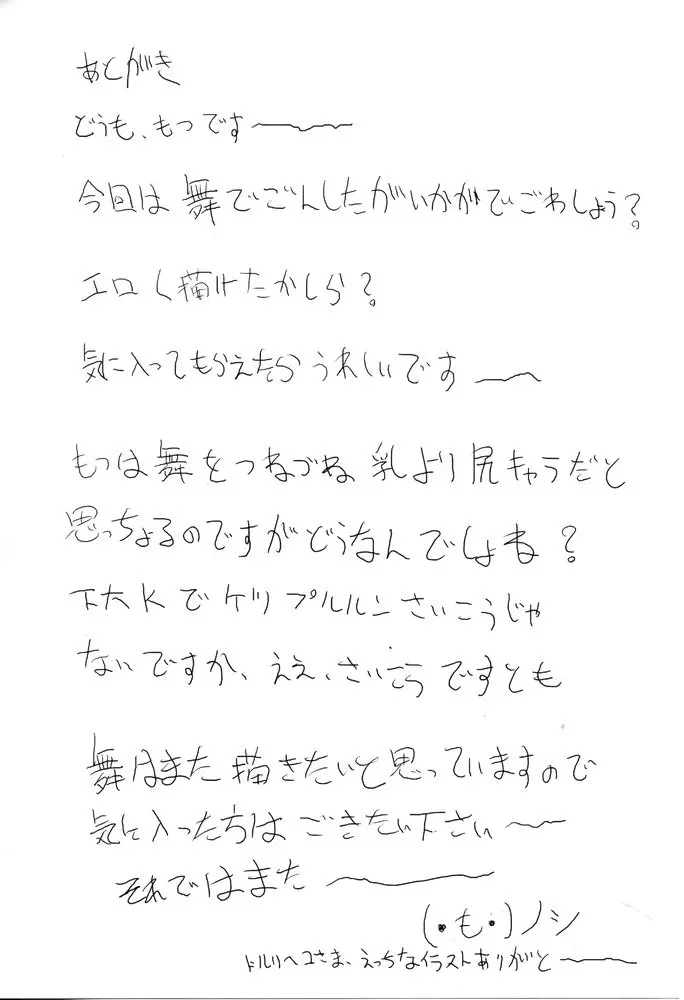 あとがき
どうも、もつです〜
今回は舞でごんしたがいかがでごわしょう？
エロく描けたかしら？
気に入ってもらえたらうれしいです〜
もつは舞をつねづね乳より尻キャラだと
思っちょるのですがどうなんでしょね？
下大Kでケツプルルンさいこうじゃ
ないですか、ええ、さいこうですとも
舞はまた描きたいと思っていますので
気に入った方はごきたい下さい〜
それではまた〜
(・も・)ノシ
ドルリヘコさま、えっちなイラストありがと〜